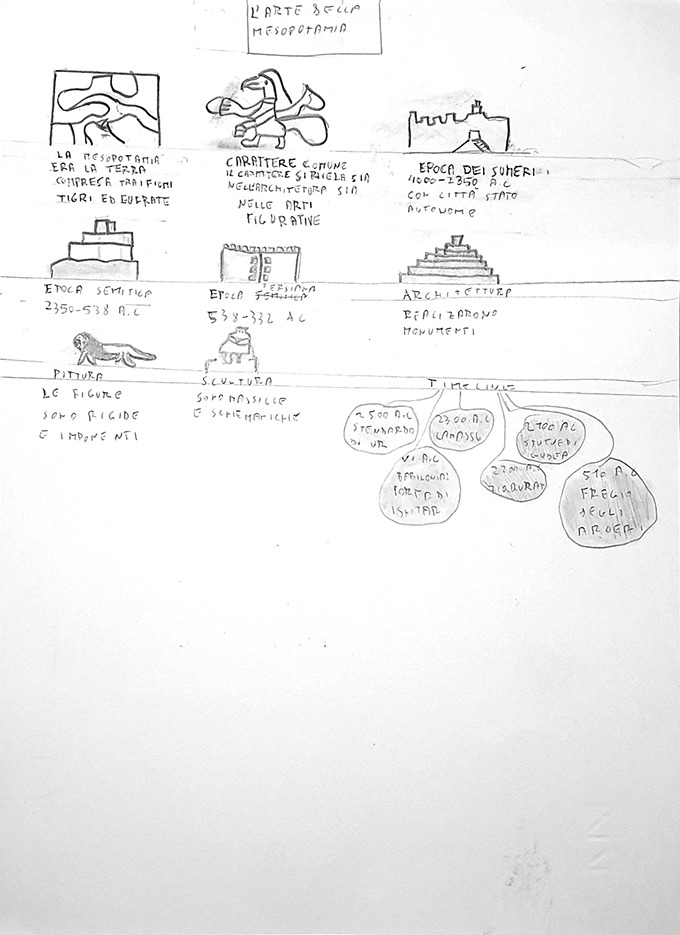 L'ARTE DELLA
MESOPOTAMIA
LA MESOPOTAMIA
ERA LA TERRA
COMPRESA TRA I FIUMI
TIGRI ED EUFRATE
CARATTERE COMUNE
IL CARATTERE SI RIVELA SIA
NELL'ARCHITETTURA SIA
NELLE ARTI
FIGURATIVE
EPOCA DEI SUMERI
4000-2350 A.C
CON CITTÀ STATO
AUTONOME
EPOCA SEMITICA
2350-538 A.C
EPOCA PERSIANA
538-332 AC
ARCHITETTURA
REALIZARONO
MONUMENTI
PITTURA
LE FIGURE
SONO RIGIDE
E IMPONENTI
SCULTURA
SONO MASSICCE
E SCHEMATICHE
TIMELINE
2500 A.C
STENDARDO
DI UR
2300 A.C
LAMASSU
2100 A.C
STATUE DI
GUDEA
VI A.C
BABILONIA:
PORTA DI
ISHTAR
2200 A.C
ZIQQURAT
510 A.C
FREGIO
DEGLI
ARCERI